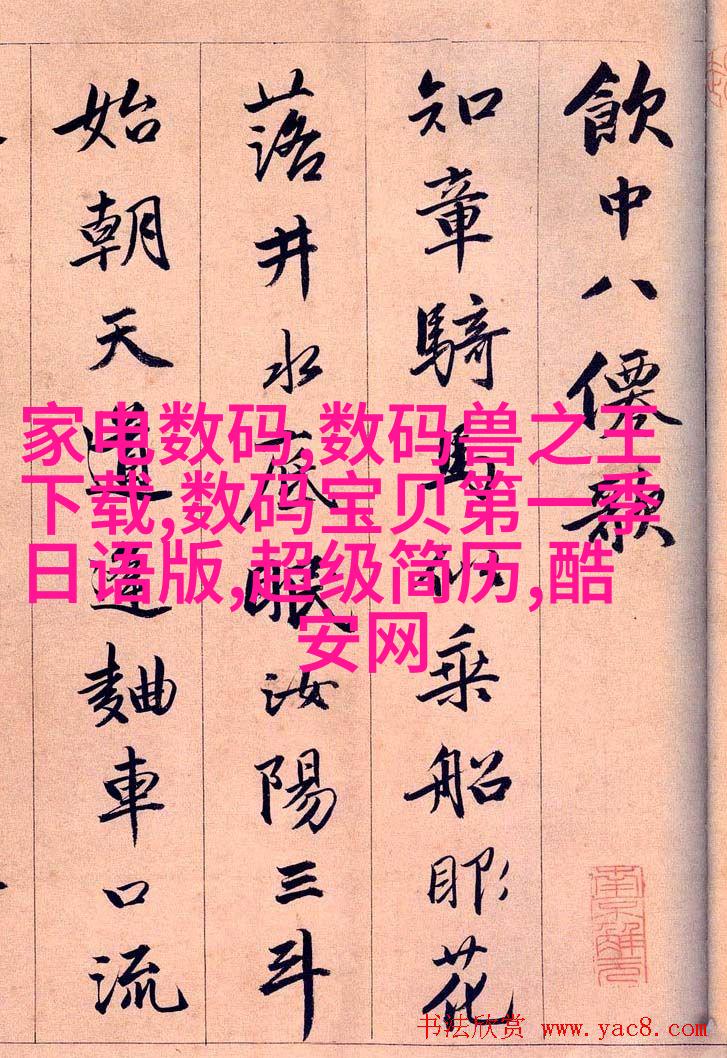 飲中八僊歌
知章騎馬似乗船眼花
落井水底眠汝陽三斗
始朝天道逢麹車口流
家电数码,数码兽之王
下载,数码宝贝第一季
日语版,超级简历,酷
安网
书法欣赏 www.yac8.com